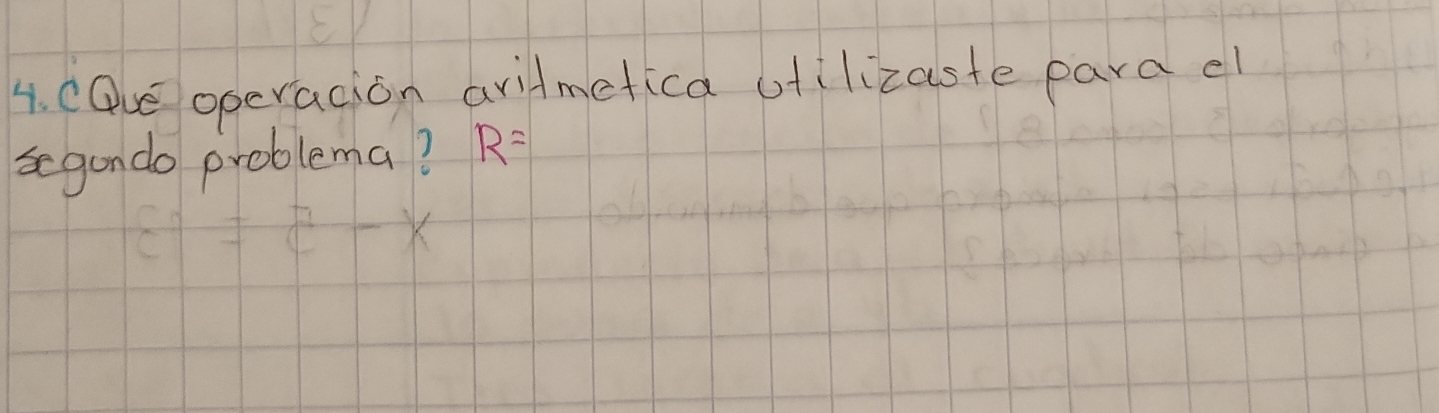 4. ¿Qué operación aritmetica utilizaste para el
segundo problema? R=